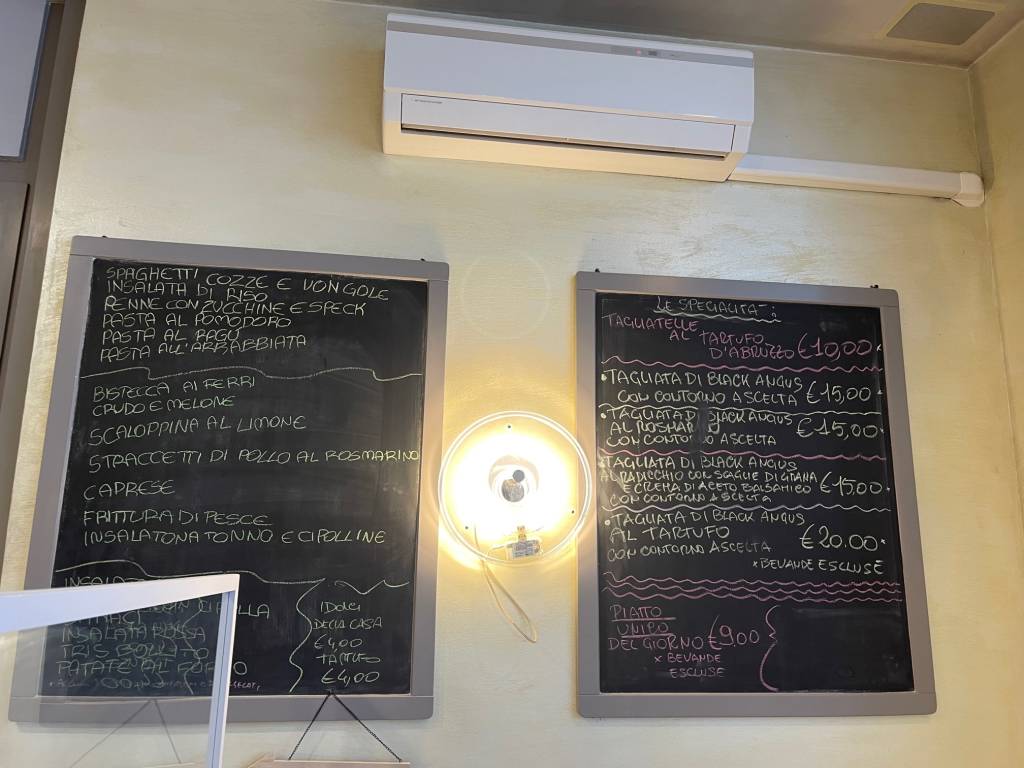 SPAGHETTI COZZE E VONGOLE
INSALATA DI RISO
PENNE CON ZUCCHINE E SPECK
PASTA AL POMODORO
PASTA AL RAGÙ
PASTA ALL'ARRABBIATA
BISTECCA AI FERRI
CRUDO E MELONE
SCALOPPINA AL LIMONE
STRACCETTI DI POLLO AL ROSMARINO
CAPRESE
FRITTURA DI PESCE
INSALATONA TONNO E CIPOLLINE
INSALATA ROSSA
TRIS BOLLITO
PATATE AL FORNO
I DOLCI
DELLA CASA
€4,00
TARTUFO
€4,00
LE SPECIALITÀ:
TAGLIATELLE
AL TARTUFO
D'ABRUZZO €10,00
• TAGLIATA DI BLACK ANGUS
CON CONTORNO A SCELTA €15,00
• TAGLIATA DI BLACK ANGUS
AL ROSMARI €15,00
CON CONTORNO A SCELTA
TAGLIATA DI BLACK ANGUS
RADICCHIO CON SCAGLIE DI GRANA
E CREMA DI ACETO BALSAMICO €15,00
CON CONTORNO A SCELTA
• TAGLIATA DI BLACK ANGUS
AL TARTUFO
CON CONTORNO A SCELTA €20.00*
*BEVANDE ESCLUSE
PIATTO
UNICO
DEL GIORNO €9.00
* BEVANDE
ESCLUSE